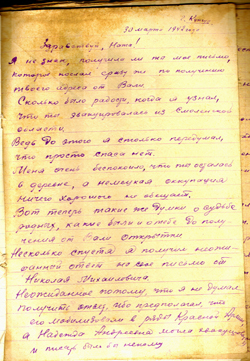 30 марта 1942 года
Здравствуй, Ната!
Я не знаю, получила ли ты мое письмо,
которое послал сразу же по получении
твоего адреса от Вали.
Сколько было радости, когда я узнал,
что ты эвакуировалась из Смоленской
области.
Ведь до этого я столько передумал,
что просто спаса нет.
Меня очень беспокоило, что ты осталась
в деревне, а немецкая оккупация
ничего хорошего не обещает.
Вот теперь такие же думы о судьбе
родных, какие были о тебе до полу-
чения от Вали открытки.
Несколько спустя я получил неожи-
данный ответ на свое письмо от
Николая Михайловича.
Неожиданное потому, что я не думал
получить ответ, ибо предполагал, что
его мобилизовали в ряды Красной Армии,
а Надежда Андреевна могла
и писать было бы некому